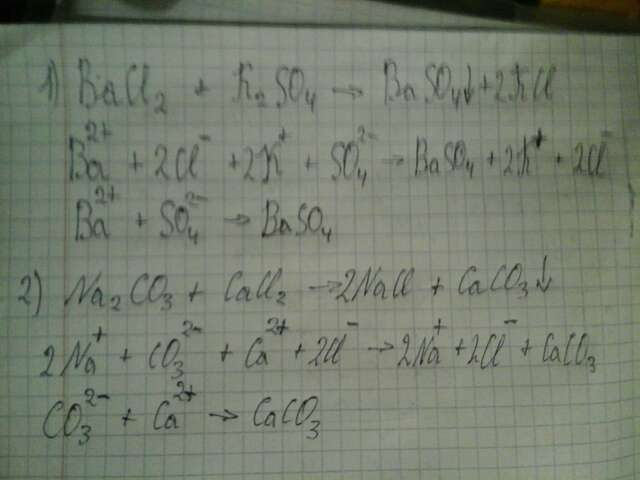 1) BaCl₂ + K₂SO₄ → BaSO₄↓ + 2KCl
Ba²⁺ + 2Cl⁻ + 2K⁺ + SO₄²⁻ → BaSO₄ + 2K⁺ + 2Cl⁻
Ba²⁺ + SO₄²⁻ → BaSO₄
2) Na₂CO₃ + CaCl₂ → 2NaCl + CaCO₃↓
2Na⁺ + CO₃²⁻ + Ca²⁺ + 2Cl⁻ → 2Na⁺ + 2Cl⁻ + CaCO₃
CO₃²⁻ + Ca²⁺ → CaCO₃